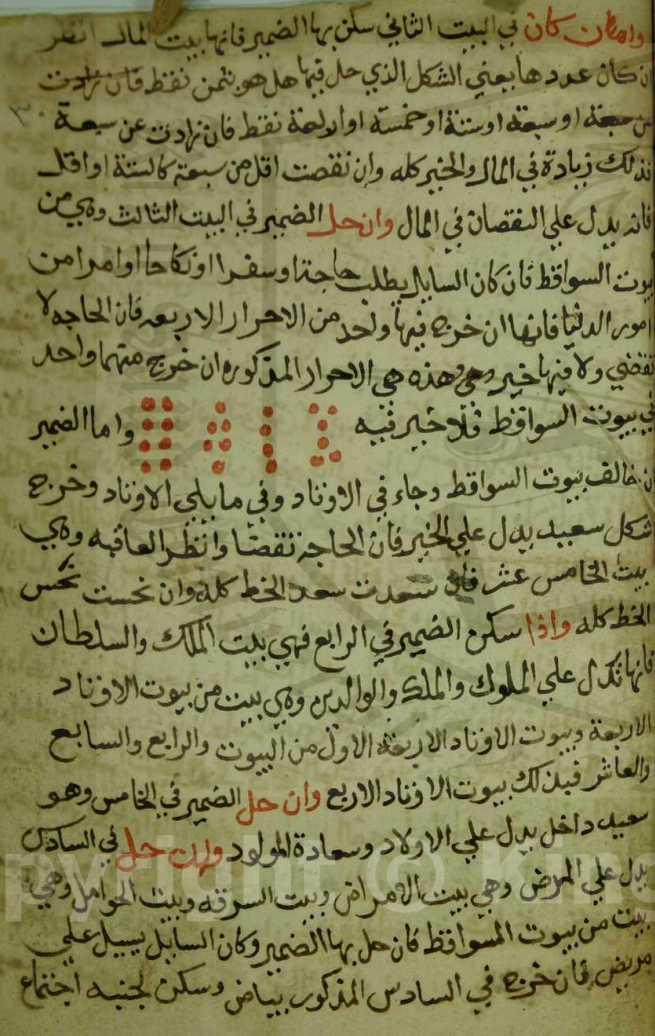 وان كان في البيت الثاني سكن بها الضمير فانها بيت المال انظر
ان كان عددها بعني الشكل الذي حل فيها هل هو بثمن نقط فان زادت
عن سبعة او ستة او خمسة او اربعة نقط فان زادت عن سبعة
فذلك زيادة في المال والخير كله وان نقصت اقل من سبعة كالستة او اقل
فانه يدل علي النقصان في المال وان حل الضمير في البيت الثالث وهي من
بيوت السواقط فان كان السايل يطلب حاجة او سفرا او نكاحا او امرا من
امور الدنيا فانها ان خرج فيها واحد من الاحرار الاربعه فان الحاجه لا
تقضي ولا فيها خير وهذه هي الاحرار المذكوره ان خرج منهما واحد
في بيوت السواقط فلا خير فيه واما الضمير
ان خالف بيوت السواقط وجاء في الاوتاد وفي ما يلي الاوتاد وخرج
شكل سعيد يدل علي الخير فان الحاجه تقضا وانظر العاقبه وهي
بيت الخامس عشر فان سعدت سعد الخط كله وان نحست نحس
الخط كله واذا سكن الضمير في الرابع فهي بيت الملك والسلطان
فانها تدل علي الملوك والملك والوالدين وهي بيت من بيوت الاوتاد
الاربعة وبيوت الاوتاد الاربعه الاول من البيوت والرابع والسابع
والعاشر فبذلك بيوت الاوتاد الاربع وان حل الضمير في الخامس وهو
سعيد داخل يدل علي الاولاد وسعادة المولود وان حل في السادس
يدل علي المرض وهي بيت الامراض وبيت السرقه وبيت الحوامل وهي
بيت من بيوت السواقط فان حل بها الضمير وكان السايل يسيل علي
مريض فان خرج في السادس المذكور بياض وسكن لجنبه اجتماع